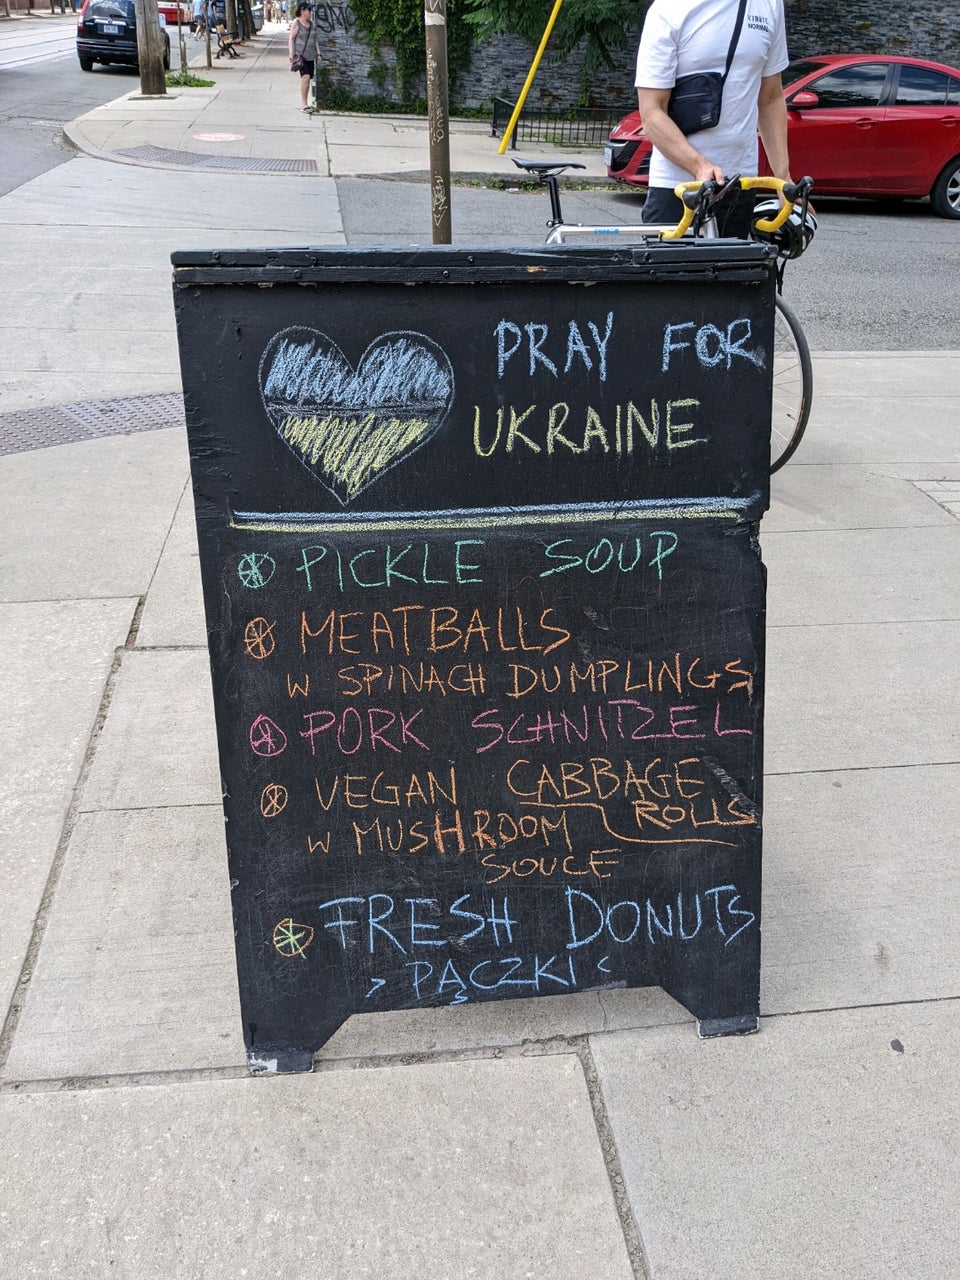 PRAY FOR
UKRAINE
PICKLE SOUP
MEATBALLS
W SPINACH DUMPLINGS
PORK SCHNITZEL
VEGAN CABBAGE
ROLLS
W MUSHROOM
SOUCE
FRESH DONUTS
> PĄCZKI <